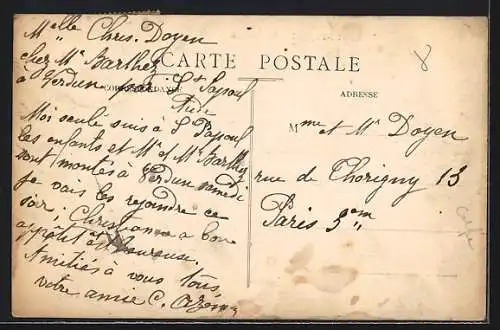 Melle Chris. Doyen
chez Mr Barthez
CARTE POSTALE
à Verdun St Papoul
CORRESPONDANCE
Aude
ADRESSE
Moi seule suis à St Papoul
les enfants et Mr et Me Barthez
sont montés à Verdun samedi
je vais les rejoindre ce
soir; Christiane a bon
appétit et heureuse.
Amitiés à vous tous
votre amie C.
Mme et Mr Doyen
rue de Thorigny 13
Paris 3em
8